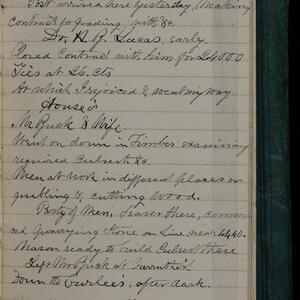 Post arrived here yesterday, Making
Contract for grading, with &c.
Dr. H. J. Lucas, early.
Closed Contract with him for 24000
Ties at 26. cts
At which I rejoiced & went my way
House's
Mr Buck & Wife.
Went on down in Timber examining
required Culverts &c.
Men at work in different places on
grubling & cutting wood.
Party of Men, Frasier there, commen-
ced Quarrying Stone on Line near 4440.
Mason ready to build Culvert there
Left Mr Buck at
Down to after dark.